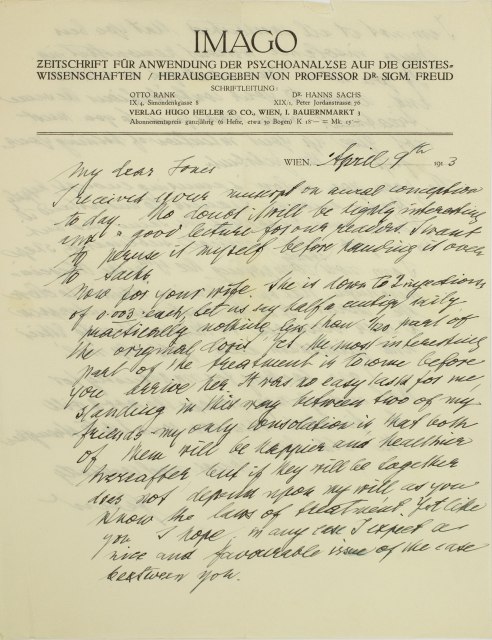 IMAGO
ZEITSCHRIFT FÜR ANWENDUNG DER PSYCHOANALYSE AUF DIE GEISTES-
WISSENSCHAFTEN / HERAUSGEGEBEN VON PROFESSOR DR. SIGM. FREUD
SCHRIFTLEITUNG:
OTTO RANK DR. HANNS SACHS
IX/4, Simondenkgasse 8 XIX/1, Peter Jordanstrasse 76
VERLAG HUGO HELLER & CO., WIEN, I. BAUERNMARKT 3
Abonnementspreis ganzjährig (6 Hefte, etwa 30 Bogen) K 18·— = Mk. 15·—
WIEN, April 9th 1913
My dear Jones
I received your on aural conception
to day. No doubt it will be highly interesting
and a good lecture for our readers. I want
to peruse it myself before handing it over
to Sachs.
Now for your wife. She is down to 2 injections
of 0.003 each, let us say half a centigr daily
practically nothing, less than 1/20 part of
the original dosis. Yet the most interesting
part of the treatment is to come before
you her. It was no easy task for me,
standing in this way between two of my
friends – my only consolation is, that both
of them will be happier and healthier
thereafter but if they will be together
does not depend upon my will as you
know the laws of treatment. Yet like
you I hope, in any case I expect a
nice and favourable issue of the case
between you.